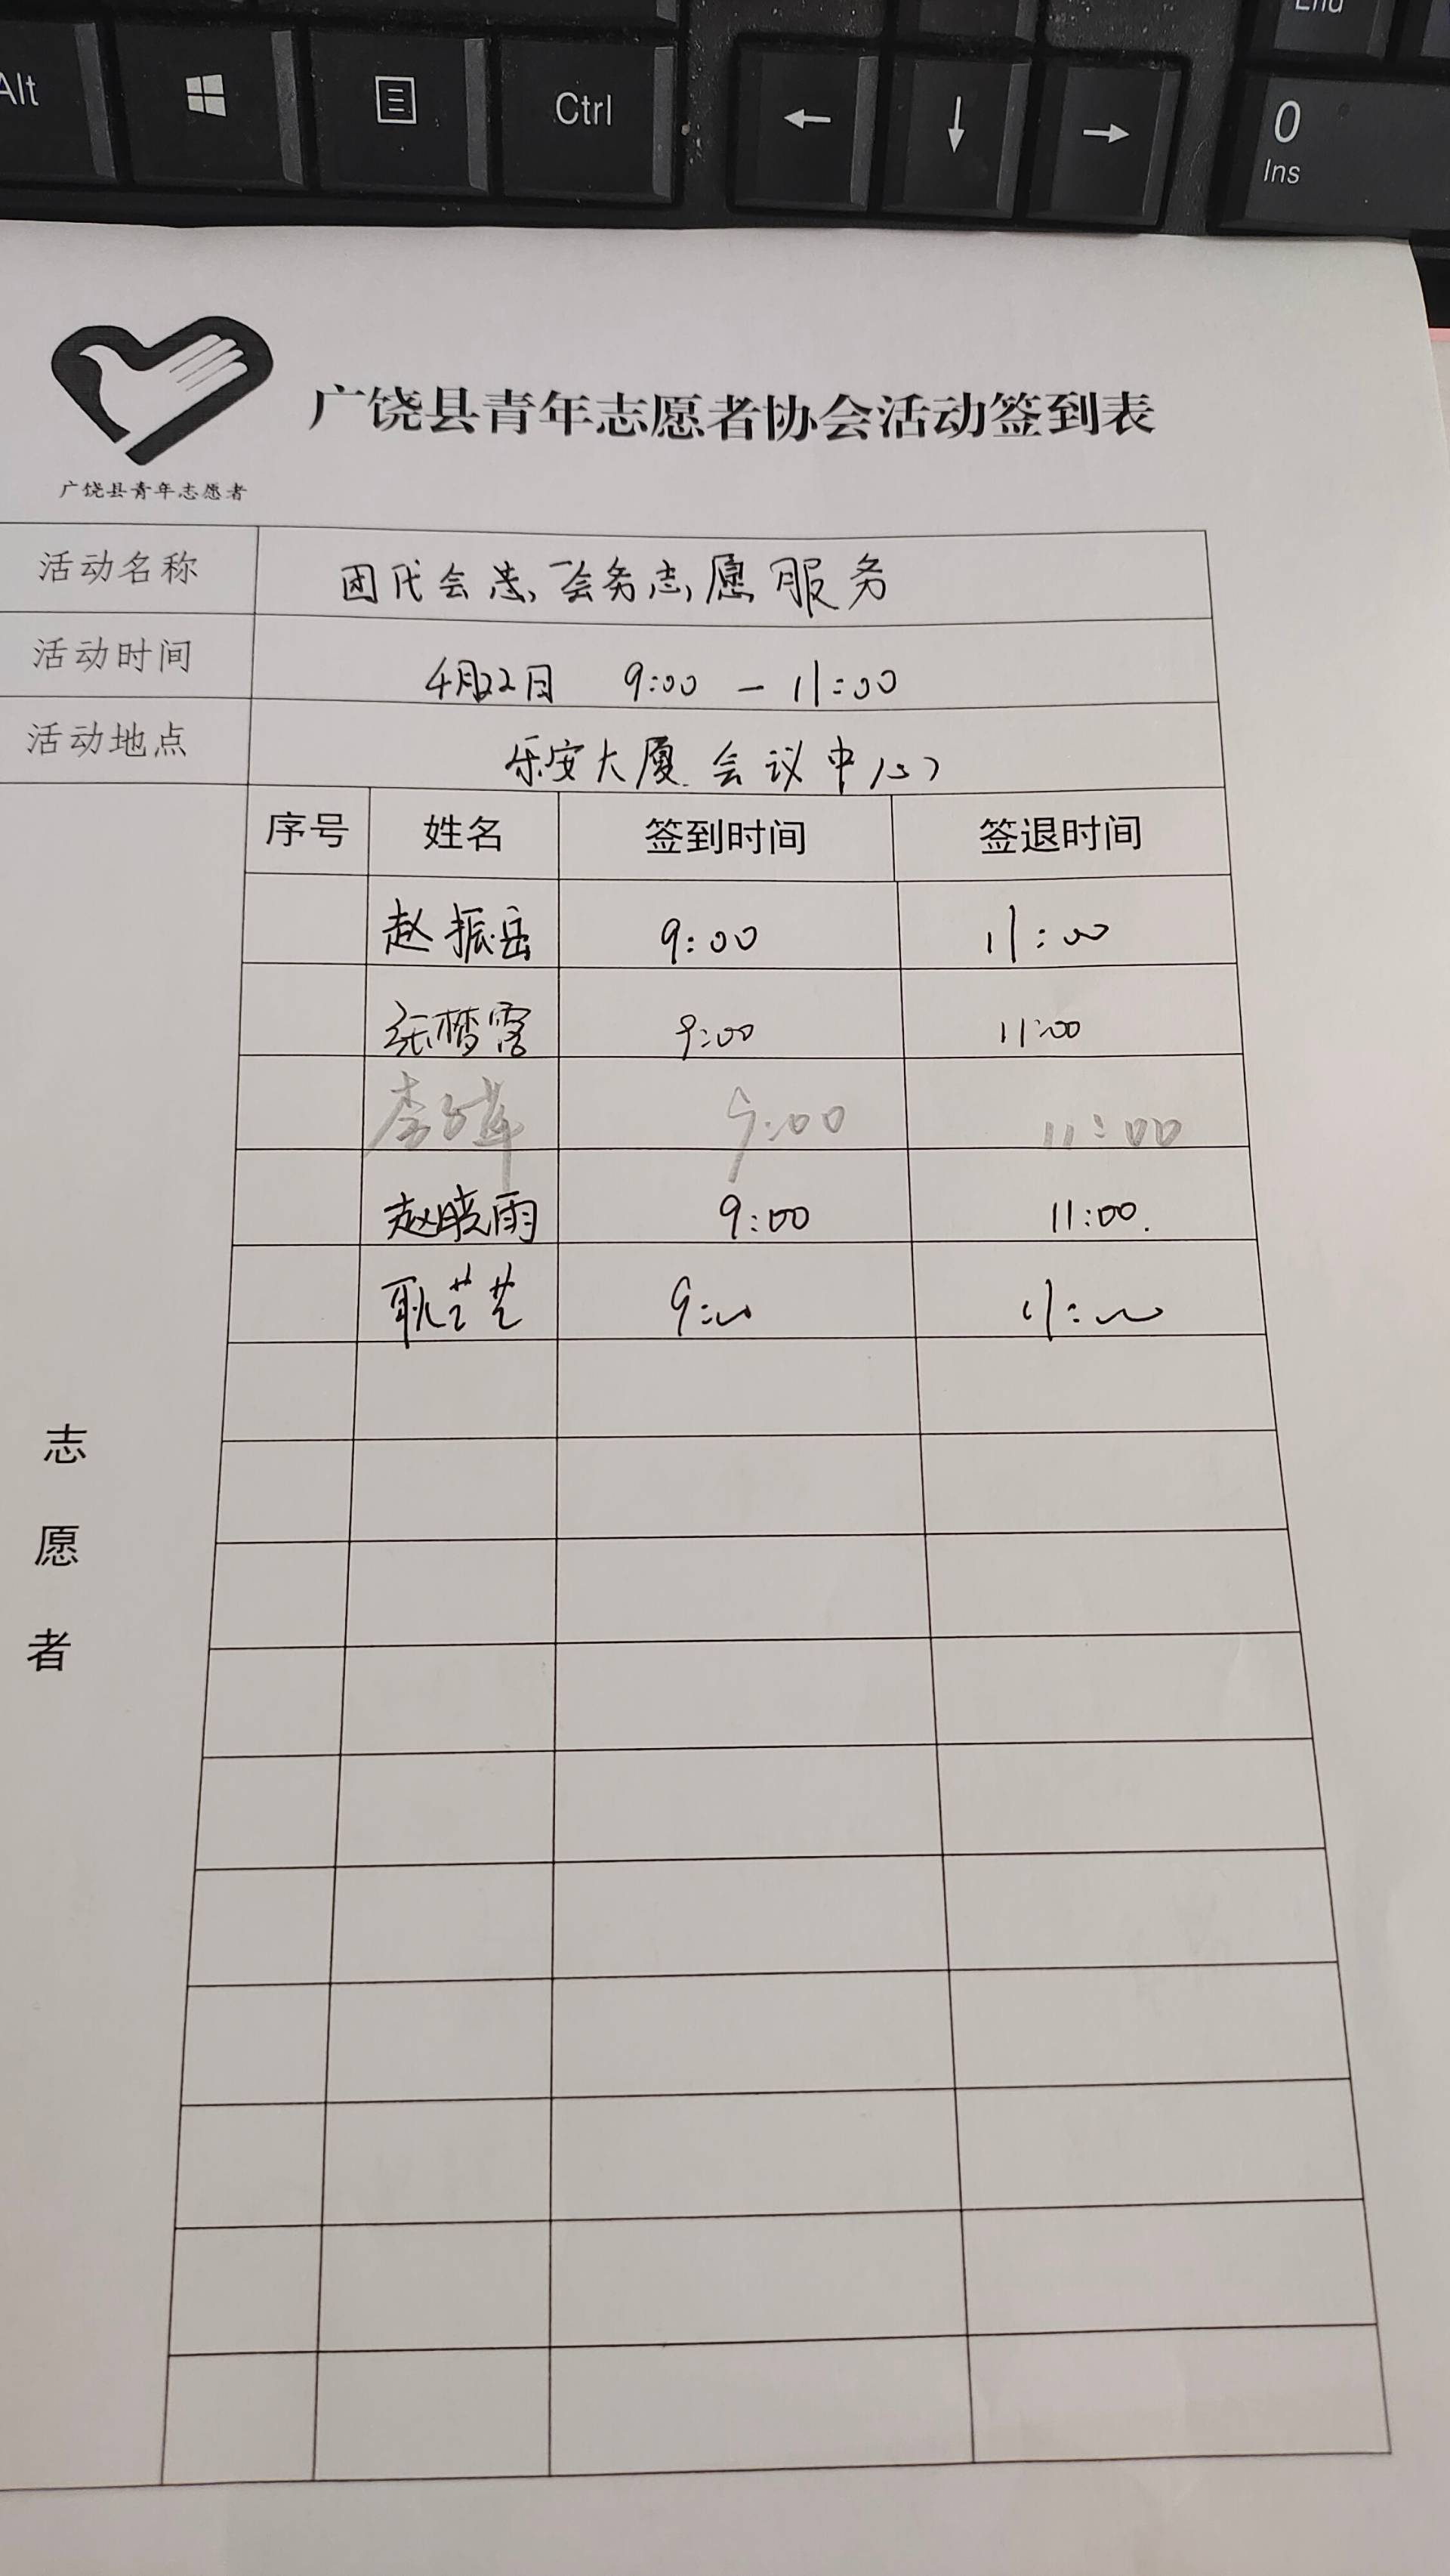 End
Alt
Ctrl
0
Ins
广饶县青年志愿者协会活动签到表
广饶县青年志愿者
活动名称 团代会 会务志愿服务
活动时间 4月22日 9:00 — 11:00
活动地点 乐安大厦 会议中心
序号 姓名 签到时间 签退时间
赵振岳 9:00 11:00
张梦露 9:00 11:00
李 9:00 11:00
赵晓雨 9:00 11:00.
耿艺艺 9:00 11:00
志
愿
者